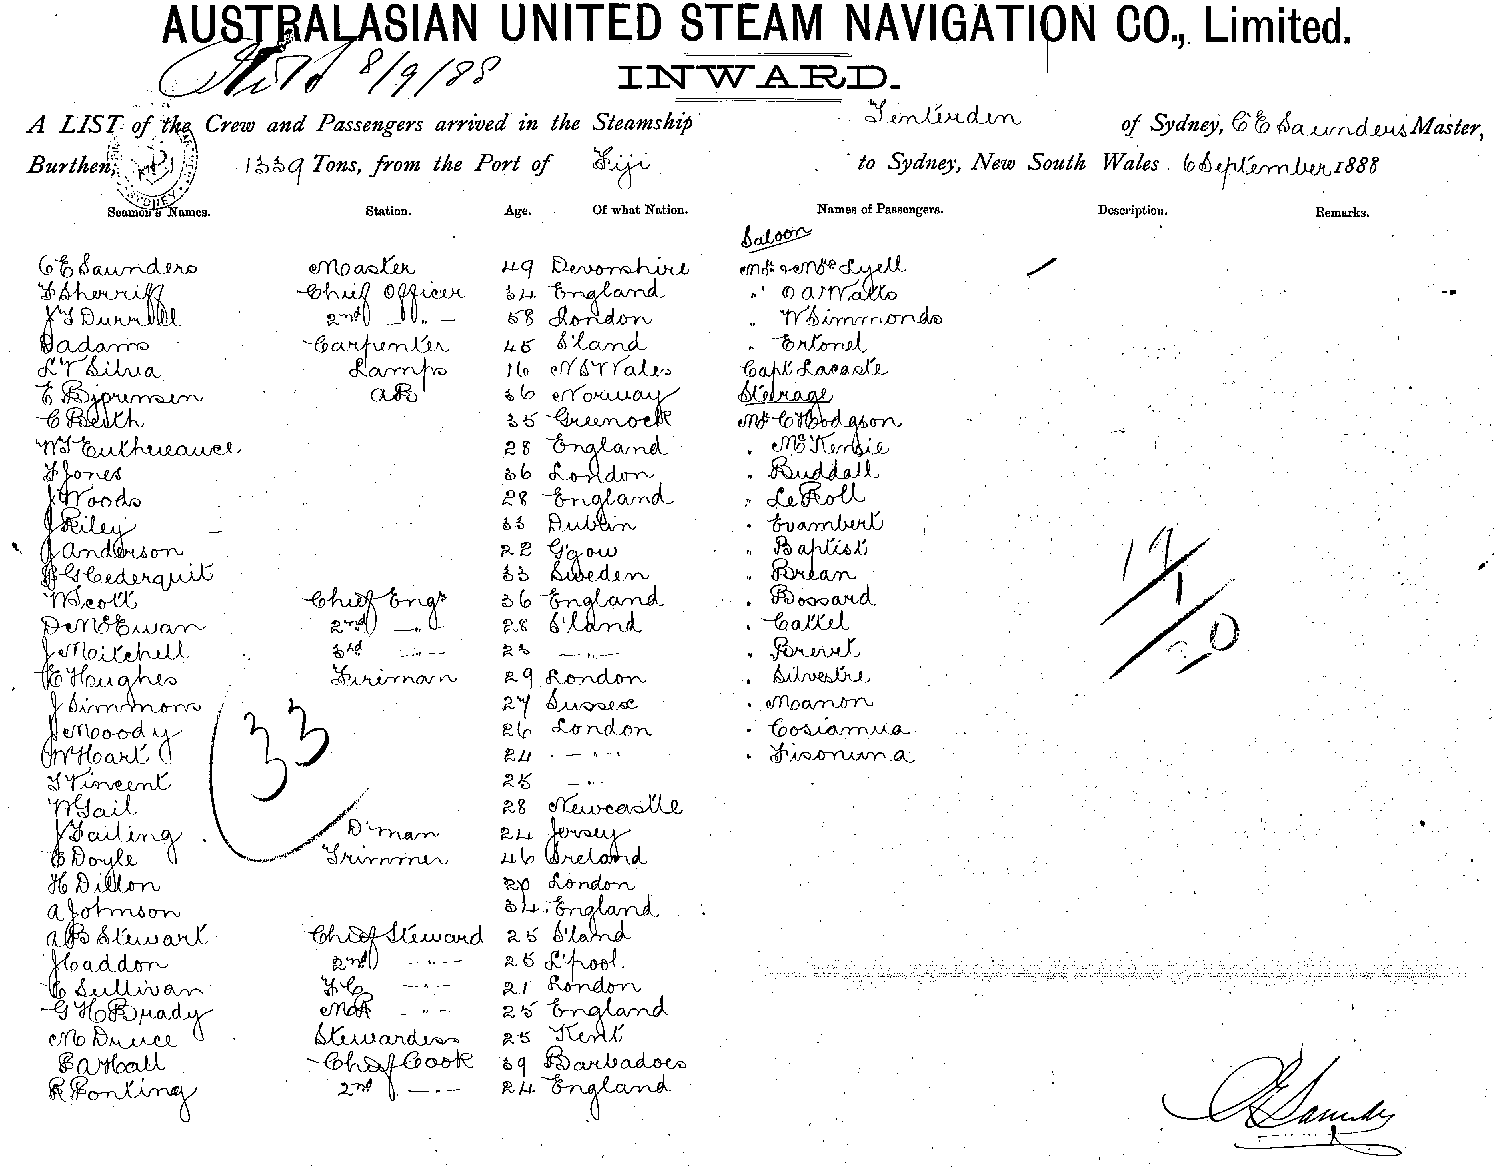 AUSTRALASIAN UNITED STEAM NAVIGATION CO., Limited.
8/9/88
INWARD.
A LIST of the Crew and Passengers arrived in the Steamship Tenterden of Sydney, C E Saunders Master,
Burthen, 1339 Tons, from the Port of Fiji to Sydney, New South Wales 6 September 1888
SYDNEY
Seamen's Names. Station. Age. Of what Nation. Names of Passengers. Description. Remarks.
Saloon
C E Saunders Master 49 Devonshire Mr & Mrs Lyell
F Sherriff Chief Officer 34 England " O A Watts
J T Durrell 2nd -"- 58 London " W Simmonds
D Adams Carpenter 45 S'land " Ertonel
L V Silva Lamps 16 N S Wales Capt Lacaste
E Bjorensen AB 36 Norway Steerage
C Beith 35 Greenock Mr C Hodgson
W T 28 England " McKensie
F Jones 36 London " Buddall
J Woods 28 England " Le Roll
J Riley 33 Dublin " Evambert
J Anderson 22 G'gow " Baptist
G Cederquit 33 Sweden " Brean
W Scott Chief Engr 36 England " Bossard
D McEwan 2nd -"- 28 S'land " Cattel
J Mitchell 3rd -"- 23 -"- " Brevet
E Hughes Fireman 29 London " Silvestre
J Simmons 27 Sussex " Manon
J Moody 26 London " Cosiamua
W Hart 24 -"- " Fisonuna
T Vincent 25 -"-
W Gail 28 Newcastle
J Failing D'man 24 Jersey
C Doyle Trimmer 46 Ireland
H Dillon 20 London
A Johnson 34 England
A B Stewart Chief Steward 25 S'land
J Caddon 2nd -"- 25 L'pool
C Sullivan F C -"- 21 London
G H Brady M R -"- 25 England
M Druce Stewardess 25 Kent
F A Hall Chief Cook 39 Barbadoes
R Ponting 2nd -"- 24 England
33
19/1/20
C E Saunders